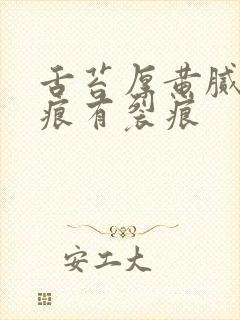 舌苔厚黄腻
痕有裂痕
安工大